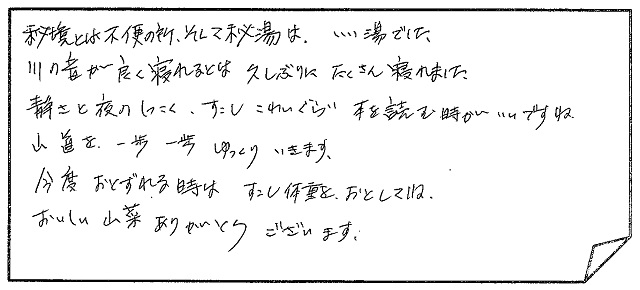 秘境とは不便の所、そして秘湯は、いい湯でした
川の音が良く寝れるとは 久しぶりに たくさん寝れました
静さと夜のしっこく、すこし こわいぐらい 本を読む時がいいですね
山道を 一歩 一歩 ゆっくり いきます。
今度 おとずれる時は すこし体重を おとしてね、
おいしい 山菜 ありがとう ございます。